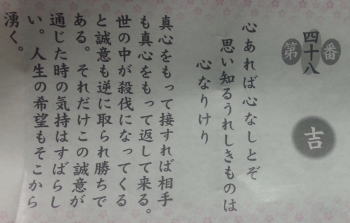 第四十八番
吉
心あれば心なしとぞ
思い知るうれしきものは
心なりけり
真心をもって接すれば相手
も真心をもって返して来る。
世の中が殺伐になってくる
と誠意も逆に取られ勝ちで
ある。それだけこの誠意が
通じた時の気持はすばらし
い。人生の希望もそこから
湧く。